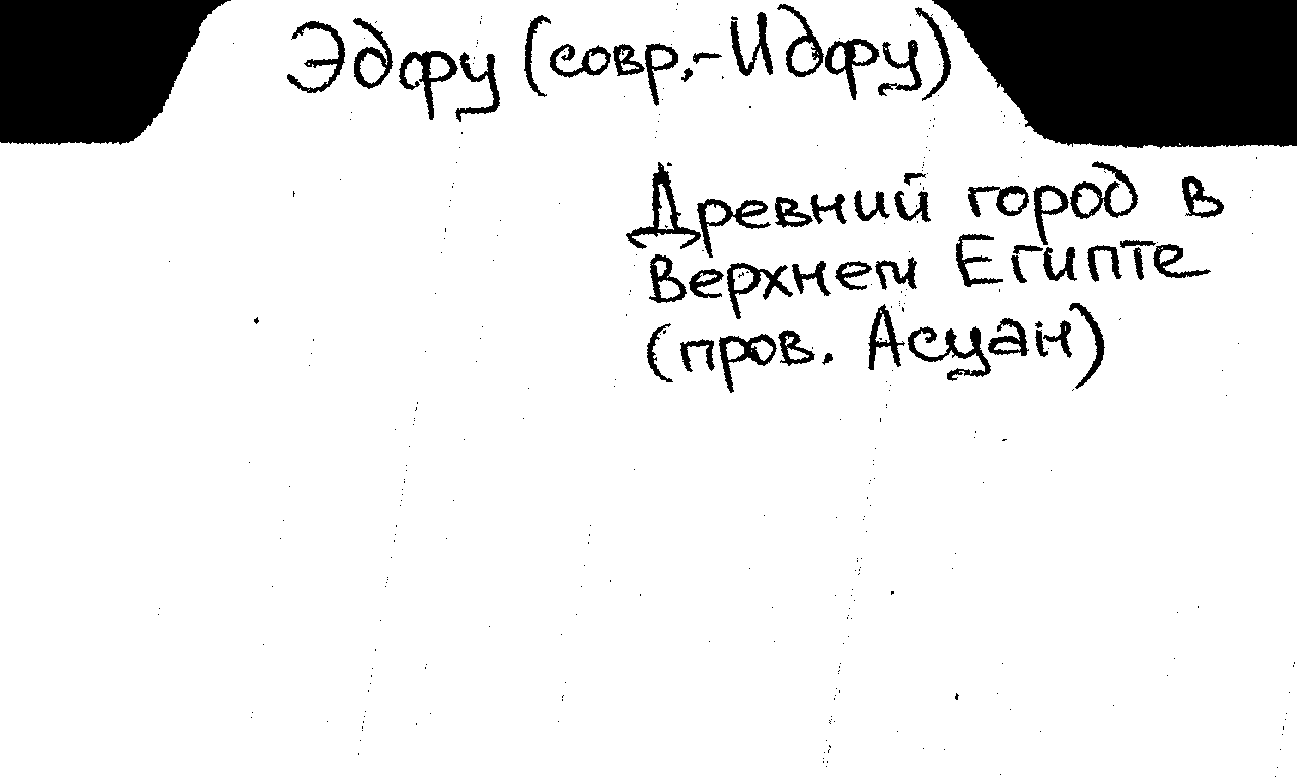 Эдфу (совр.-Идфу)
Древний город в
Верхнем Египте
(пров. Асуан)